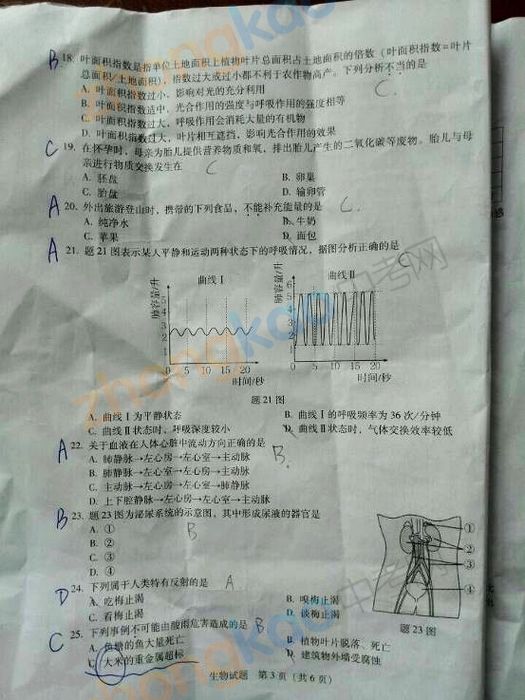 B 18. 叶面积指数是指单位土地面积上植物叶片总面积占土地面积的倍数(叶面积指数=叶片
总面积/土地面积),指数过大或过小都不利于农作物高产。下列分析不当的是
A. 叶面积指数过小,影响对光的充分利用 C.
B. 叶面积指数适中,光合作用的强度与呼吸作用的强度相等
C. 叶面积指数过大,呼吸作用会消耗大量的有机物
D. 叶面积指数过大,叶片相互遮挡,影响光合作用的效果
C 19. 在怀孕时,母亲为胎儿提供营养物质和氧,排出胎儿产生的二氧化碳等废物。胎儿与母
亲进行物质交换发生在 C
A. 胚盘 B. 卵巢
C. 胎盘 D. 输卵管
A 20. 外出旅游登山时,携带的下列食品,不能补充能量的是 C.
A. 纯净水 B. 牛奶
C. 苹果 D. 面包
A 21. 题21图表示某人平静和运动两种状态下的呼吸情况,据图分析正确的是 C
曲线Ⅰ 曲线Ⅱ
肺容量/升 肺容量/升
5 6
4 5
3 4
2 3
1 2
1
0 5 10 15 20 0 5 10 15 20
时间/秒 时间/秒
题21图
A. 曲线Ⅰ为平静状态 B. 曲线Ⅰ的呼吸频率为36次/分钟
C. 曲线Ⅱ状态时,呼吸深度较小 D. 曲线Ⅱ状态时,气体交换效率较低
A 22. 关于血液在人体心脏中流动方向正确的是 B.
A. 肺静脉→左心房→左心室→主动脉
B. 肺静脉→左心室→左心房→主动脉
C. 主动脉→左心房→左心室→肺静脉
D. 上下腔静脉→左心房→左心室→主动脉
B 23. 题23图为泌尿系统的示意图,其中形成尿液的器官是
A. ① B
B. ②
C. ③
D. ④
① ② ③ ④
题23图
D 24. 下列属于人类特有反射的是 A
A. 吃梅止渴 B. 嗅梅止渴
C. 看梅止渴 D. 谈梅止渴
C 25. 下列事例不可能由酸雨危害造成的是 B
A. 鱼塘的鱼大量死亡 B. 植物叶片脱落、死亡
C. 大米的重金属超标 D. 建筑物外墙受腐蚀
生物试题 第3页(共6页)
zhongkao 中考网